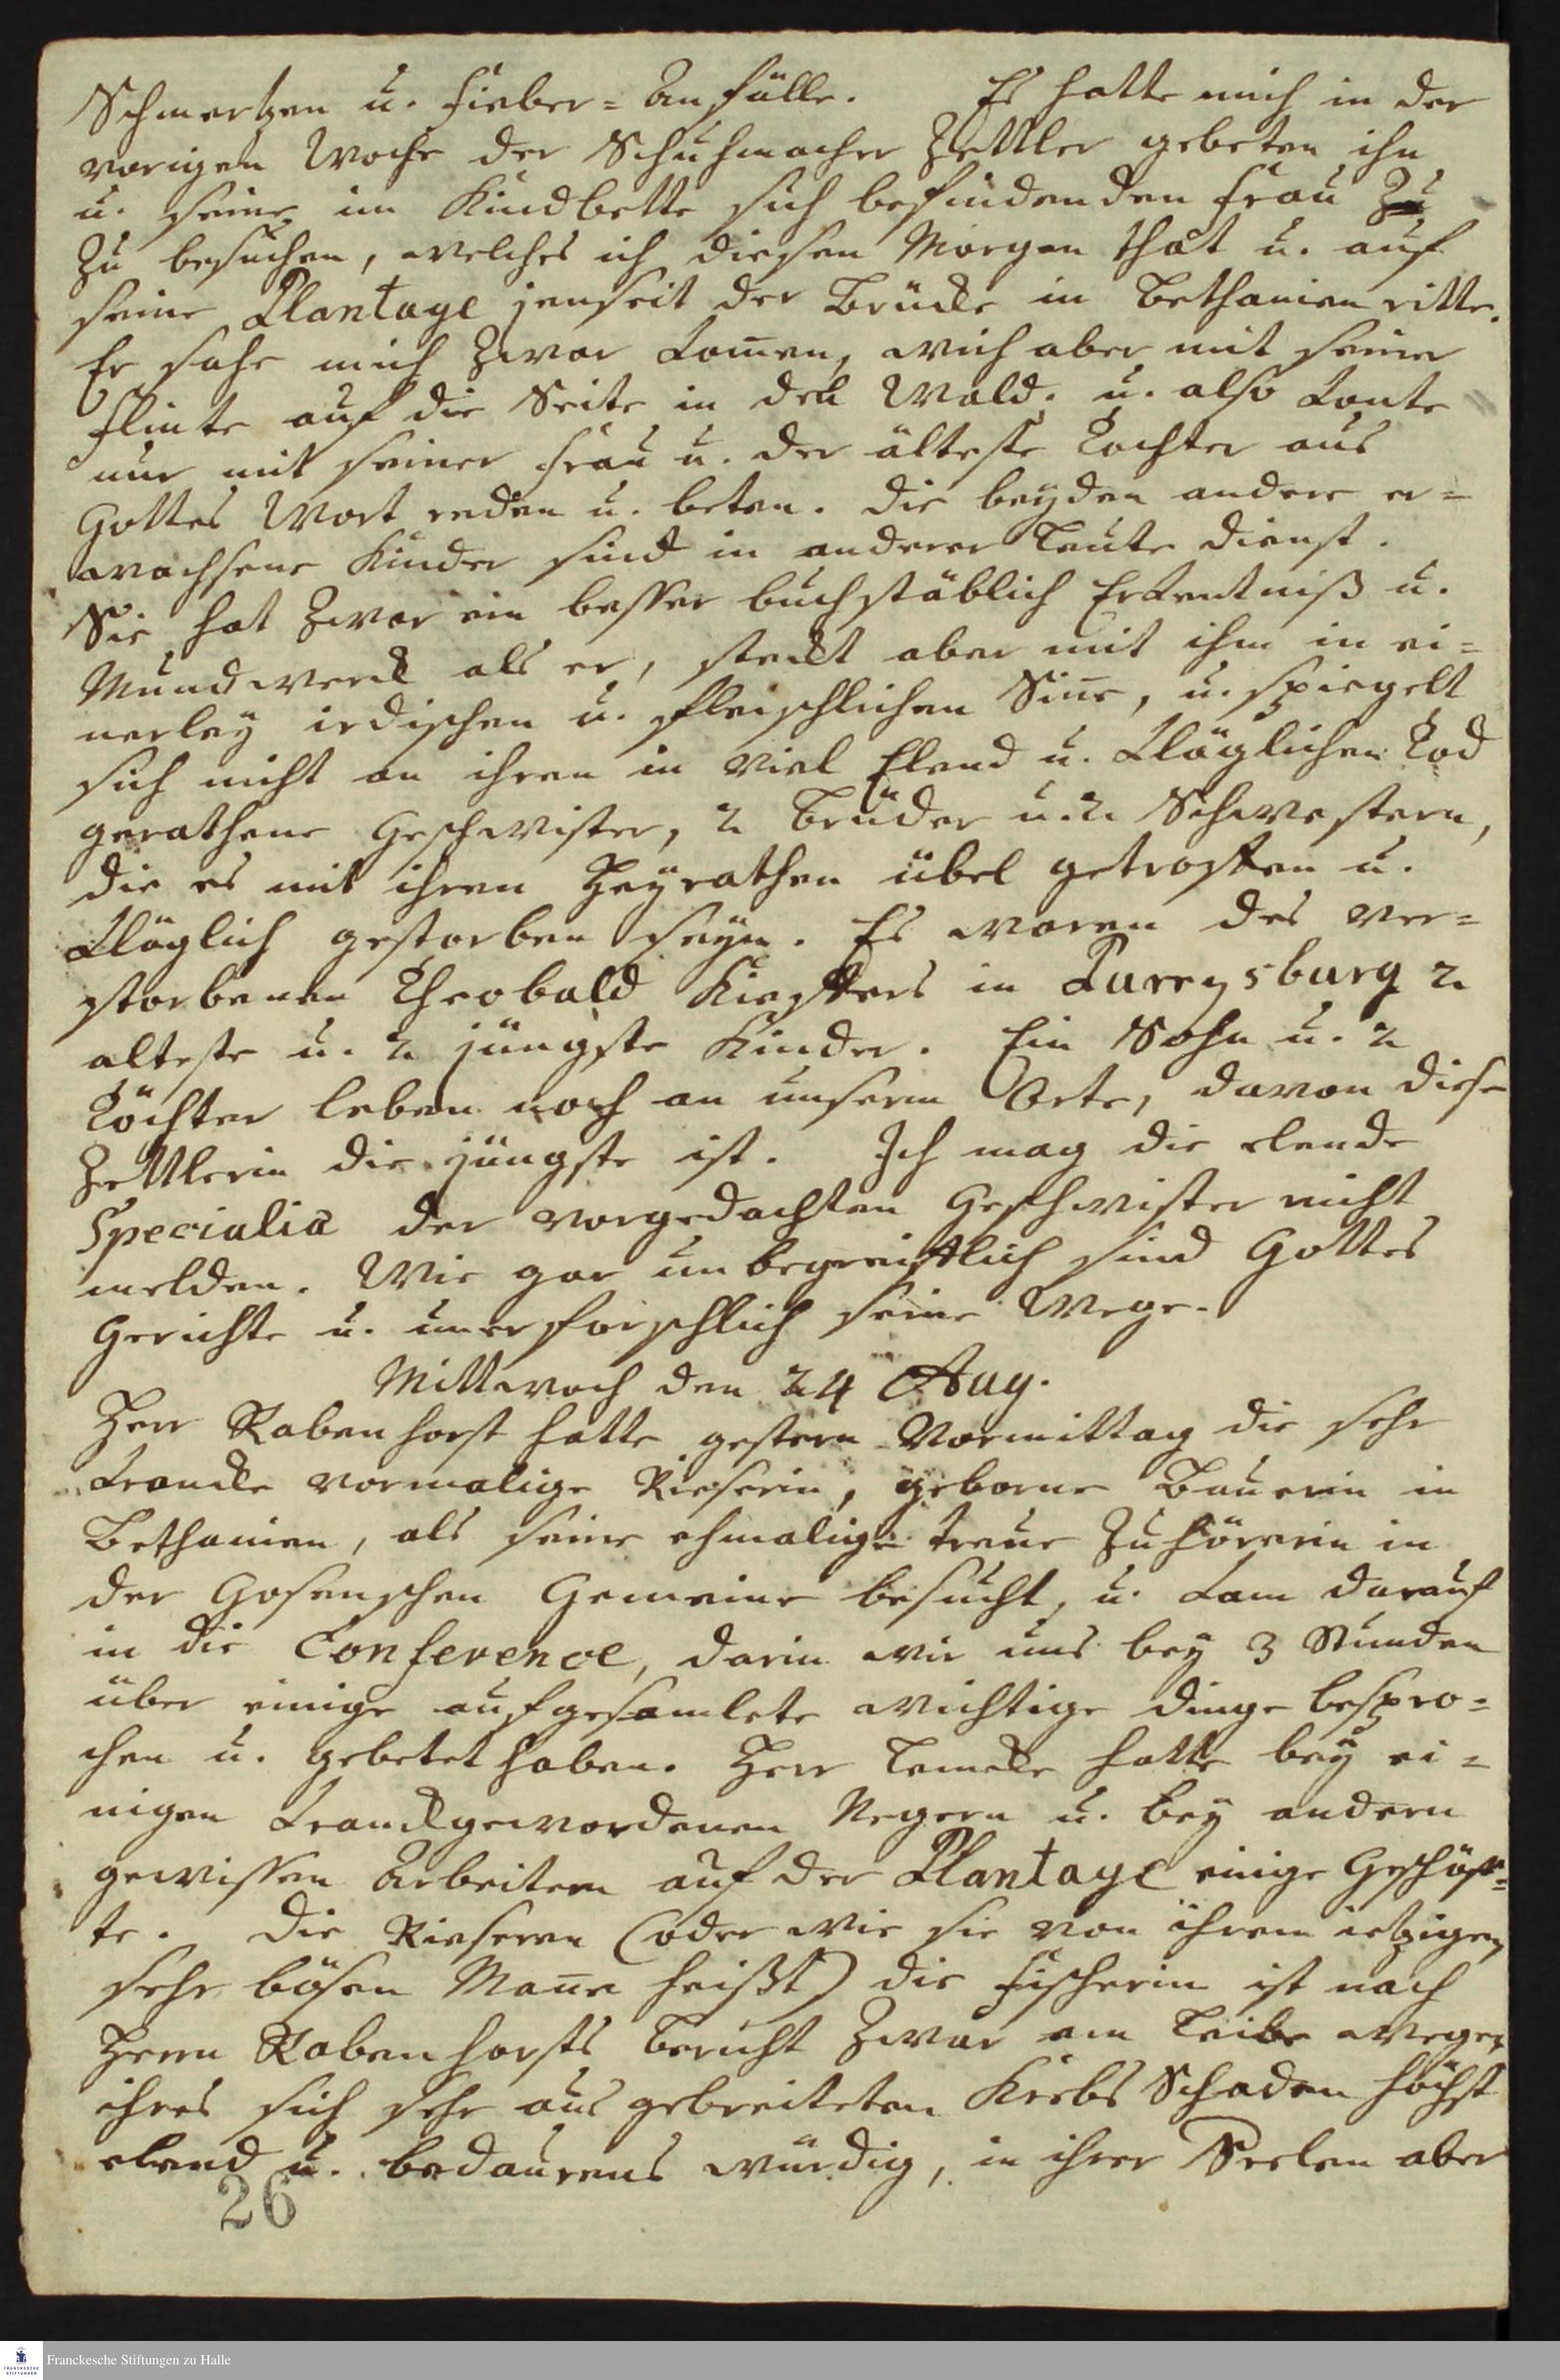 Schmertzen u. Fieber-Anfälle. Es hatte mich in der
vorigen Woche der Schuhmacher Zettler gebeten ihn
u. seine im Kindbette sich befindenden Frau zu
zu besuchen, welches ich diesen Morgen that u. auf
seine Plantage jenseit der Brücke in Bethanien ritte.
Er sahe mich zwar kom̄en, wich aber mit seiner
Flinte auf die Seite in den Wald. u. also konte
nur mit seiner Frau u. der älteste Tochter aus
Gottes Wort reden u. beten. Die beyden andere er-
wachsene Kinder sind in anderer Leute Dienst.
Sie hat zwar ein besser buchstäblich Erkentniß u.
Mundwerck als er, steckt aber mit ihm in ei-
nerley irdischen u. fleischlichen Sin̄e, u. spiegelt
sich nicht an ihren in viel Elend u. kläglichen Tod
gerathene Geschwister, 2 Brüder u. 2 Schwestern,
die es mit ihren Heyrathen übel getroffen u.
kläglich gestorben seyn. Es waren des ver-
storbenen Theobald Kieffers in Purrysburg 2
alteste u. 2 jüngste Kinder. Ein Sohn u. 2
Töchter leben noch an unserm Orte, davon diese
Zettlerin die jüngste ist. Ich mag die elende
Specialia der vorgedachten Geschwister nicht
melden. Wie gar unbegreifflich sind Gottes
Gerichte u. unerforschlich seine Wege.
Mittwoch den 24 Aug.
Herr Rabenhorst hatte gestern Vormittag die sehr
krancke vormalige Rieserin, geborne Bauerin in
Bethanien, als seine ehmalige treue Zuhörerin in
der Gosenschen Gemeine besucht, u. kam darauf
in die Conference, darin wir uns bey 3 Stunden
über einige aufgesamlete wichtige Dinge bespro-
chen u. gebetet haben. Herr Lemcke hatte bey ei-
nigen kranckgewordenen Negern u. bey andern
gewissen Arbeitern auf der Plantage einige Geschäf-
te. Die Rieserin (oder wie sie von ihrem ietzigen
sehr bösen Man̄e heißt) die Fischerin ist nach
Herrn Rabenhorsts Bericht zwar am Leibe wegen
ihres sich sehr aus gebreiteten Krebs Schaden höchst
elend u. bedaurens würdig, in ihrer Seelen aber
26
Franckesche Stiftungen zu Halle